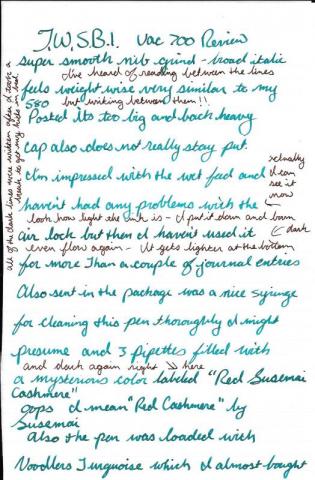 T.W.S.B.I. Vac 700 Review
super smooth nib grind - broad italic
I've heard of reading between the lines
feels weight wise very similar to my
580 but writing between them!!
Posted its too big and back heavy
cap also does not really stay put.
I'm impressed with the wet feed and
actually I can see it now
haven't had any problems with the
look how light the ink is - I put it down and bam
air lock but then I haven't used it
dark
even flow again - It gets lighter at the bottom
for more than a couple of journal entries
Also sent in the package was a nice syringe
for cleaning this pen thoroughly I might
presume and 3 pipettes filled with
and dark again right here
a mysterious color labeled "Red Susemai
Cashmere"
oops I mean "Red Cashmere" by
Susemai
Also the pen was loaded with
Noodlers Turquoise which I almost bought
all of the dark lines were written after I took a
break to get my kids in bed.